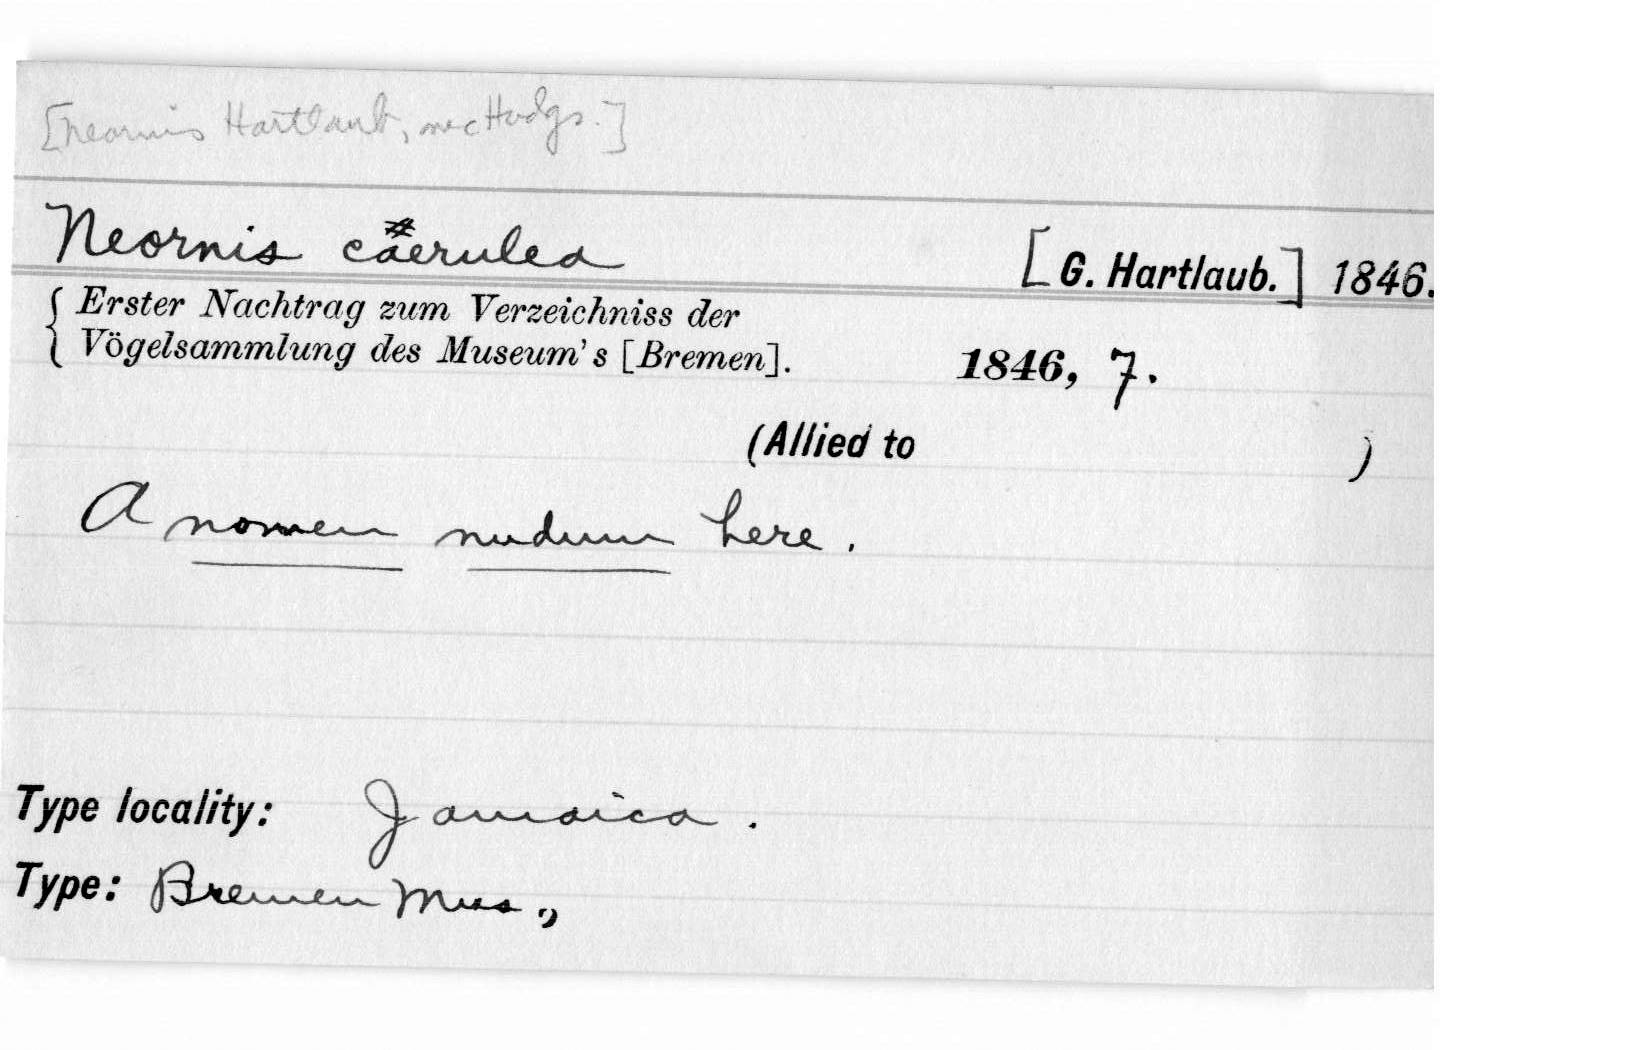 [Neornis Hartlaub, nec Hodgs.]
Neornis caerulea [G. Hartlaub.] 1846.
{ Erster Nachtrag zum Verzeichniss der
Vögelsammlung des Museum's [Bremen]. 1846, 7.
(Allied to )
A nomen nudum here.
Type locality: Jamaica.
Type: Bremen Mus.,